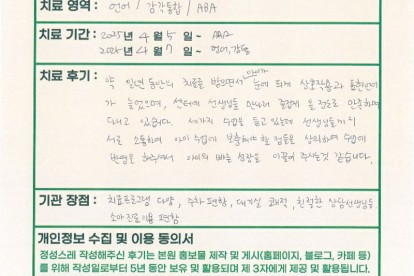 치료 영역 : 언어 / 감각통합 / ABA
치료 기간 : 2025년 4월 5일 ~ ABA
2024년 4월 7일 ~ 언어, 감통
치료 후기 : 약 일년 동안의 치료를 받으면서 아이가 눈에 띄게 상호작용과 표현언어
가 늘었으며, 센터에 선생님들 만나러 즐겁게 올 정도로 만족하며
다니고 있습니다. 세가지 수업을 듣고 있는데 선생님들끼리
서로 소통하며 아이 수업에 부족해야 할 점들을 상의하며 수업에
반영을 해주셔서 아이의 빠른 성장을 이끌어 주시는것 같습니다.
기관 장점 : 치료프로그램 다양, 주차 편함, 대기실 쾌적, 친절한 상담선생님들,
소아진료이용 편함
개인정보 수집 및 이용 동의서
정성스레 작성해주신 후기는 본원 홍보물 제작 및 게시(홈페이지, 블로그, 카페 등)
를 위해 작성일로부터 5년 동안 보유 및 활용되며 제 3자에게 제공 및 활용됩니다.